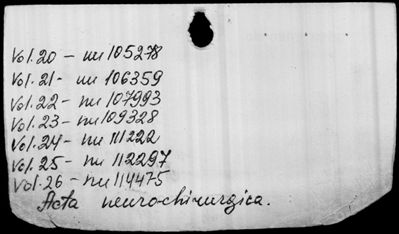 Vol. 20 - nu 105278
Vol. 21 - nu 106359
Vol. 22 - nu 107993
Vol. 23 - nu 109328
Vol. 24 - nu 111222
Vol. 25 - nu 112297
Vol. 26 - nu 114475
Acta neurochirurgica.